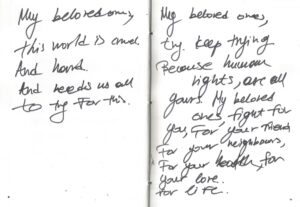 My beloved ones,
this world is cruel.
And hard.
And needs us all
to try for this.
My beloved ones,
try. keep trying
Because human
rights, are all
yours. My beloved
ones fight for
you, For, your friends
For your neighbours,
For your health, for
your love.
for life.